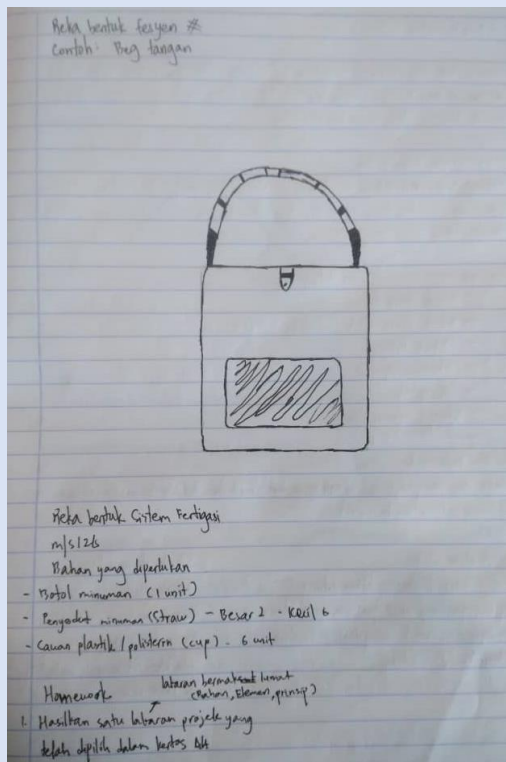 Reka bentuk fesyen *
Contoh: Beg tangan
Reka bentuk Sistem Fertigasi
m/s 126
Bahan yang diperlukan
- Botol minuman (1 unit)
- Penyedut minuman (straw) - Besar 2 - Kecil 6
- Cawan plastik / polisterin (cup) - 6 unit
lakaran bermaklumat
(Bahan, Elemen, prinsip)
Homework
1. Hasilkan satu lakaran projek yang
telah dipilih dalam kertas A4